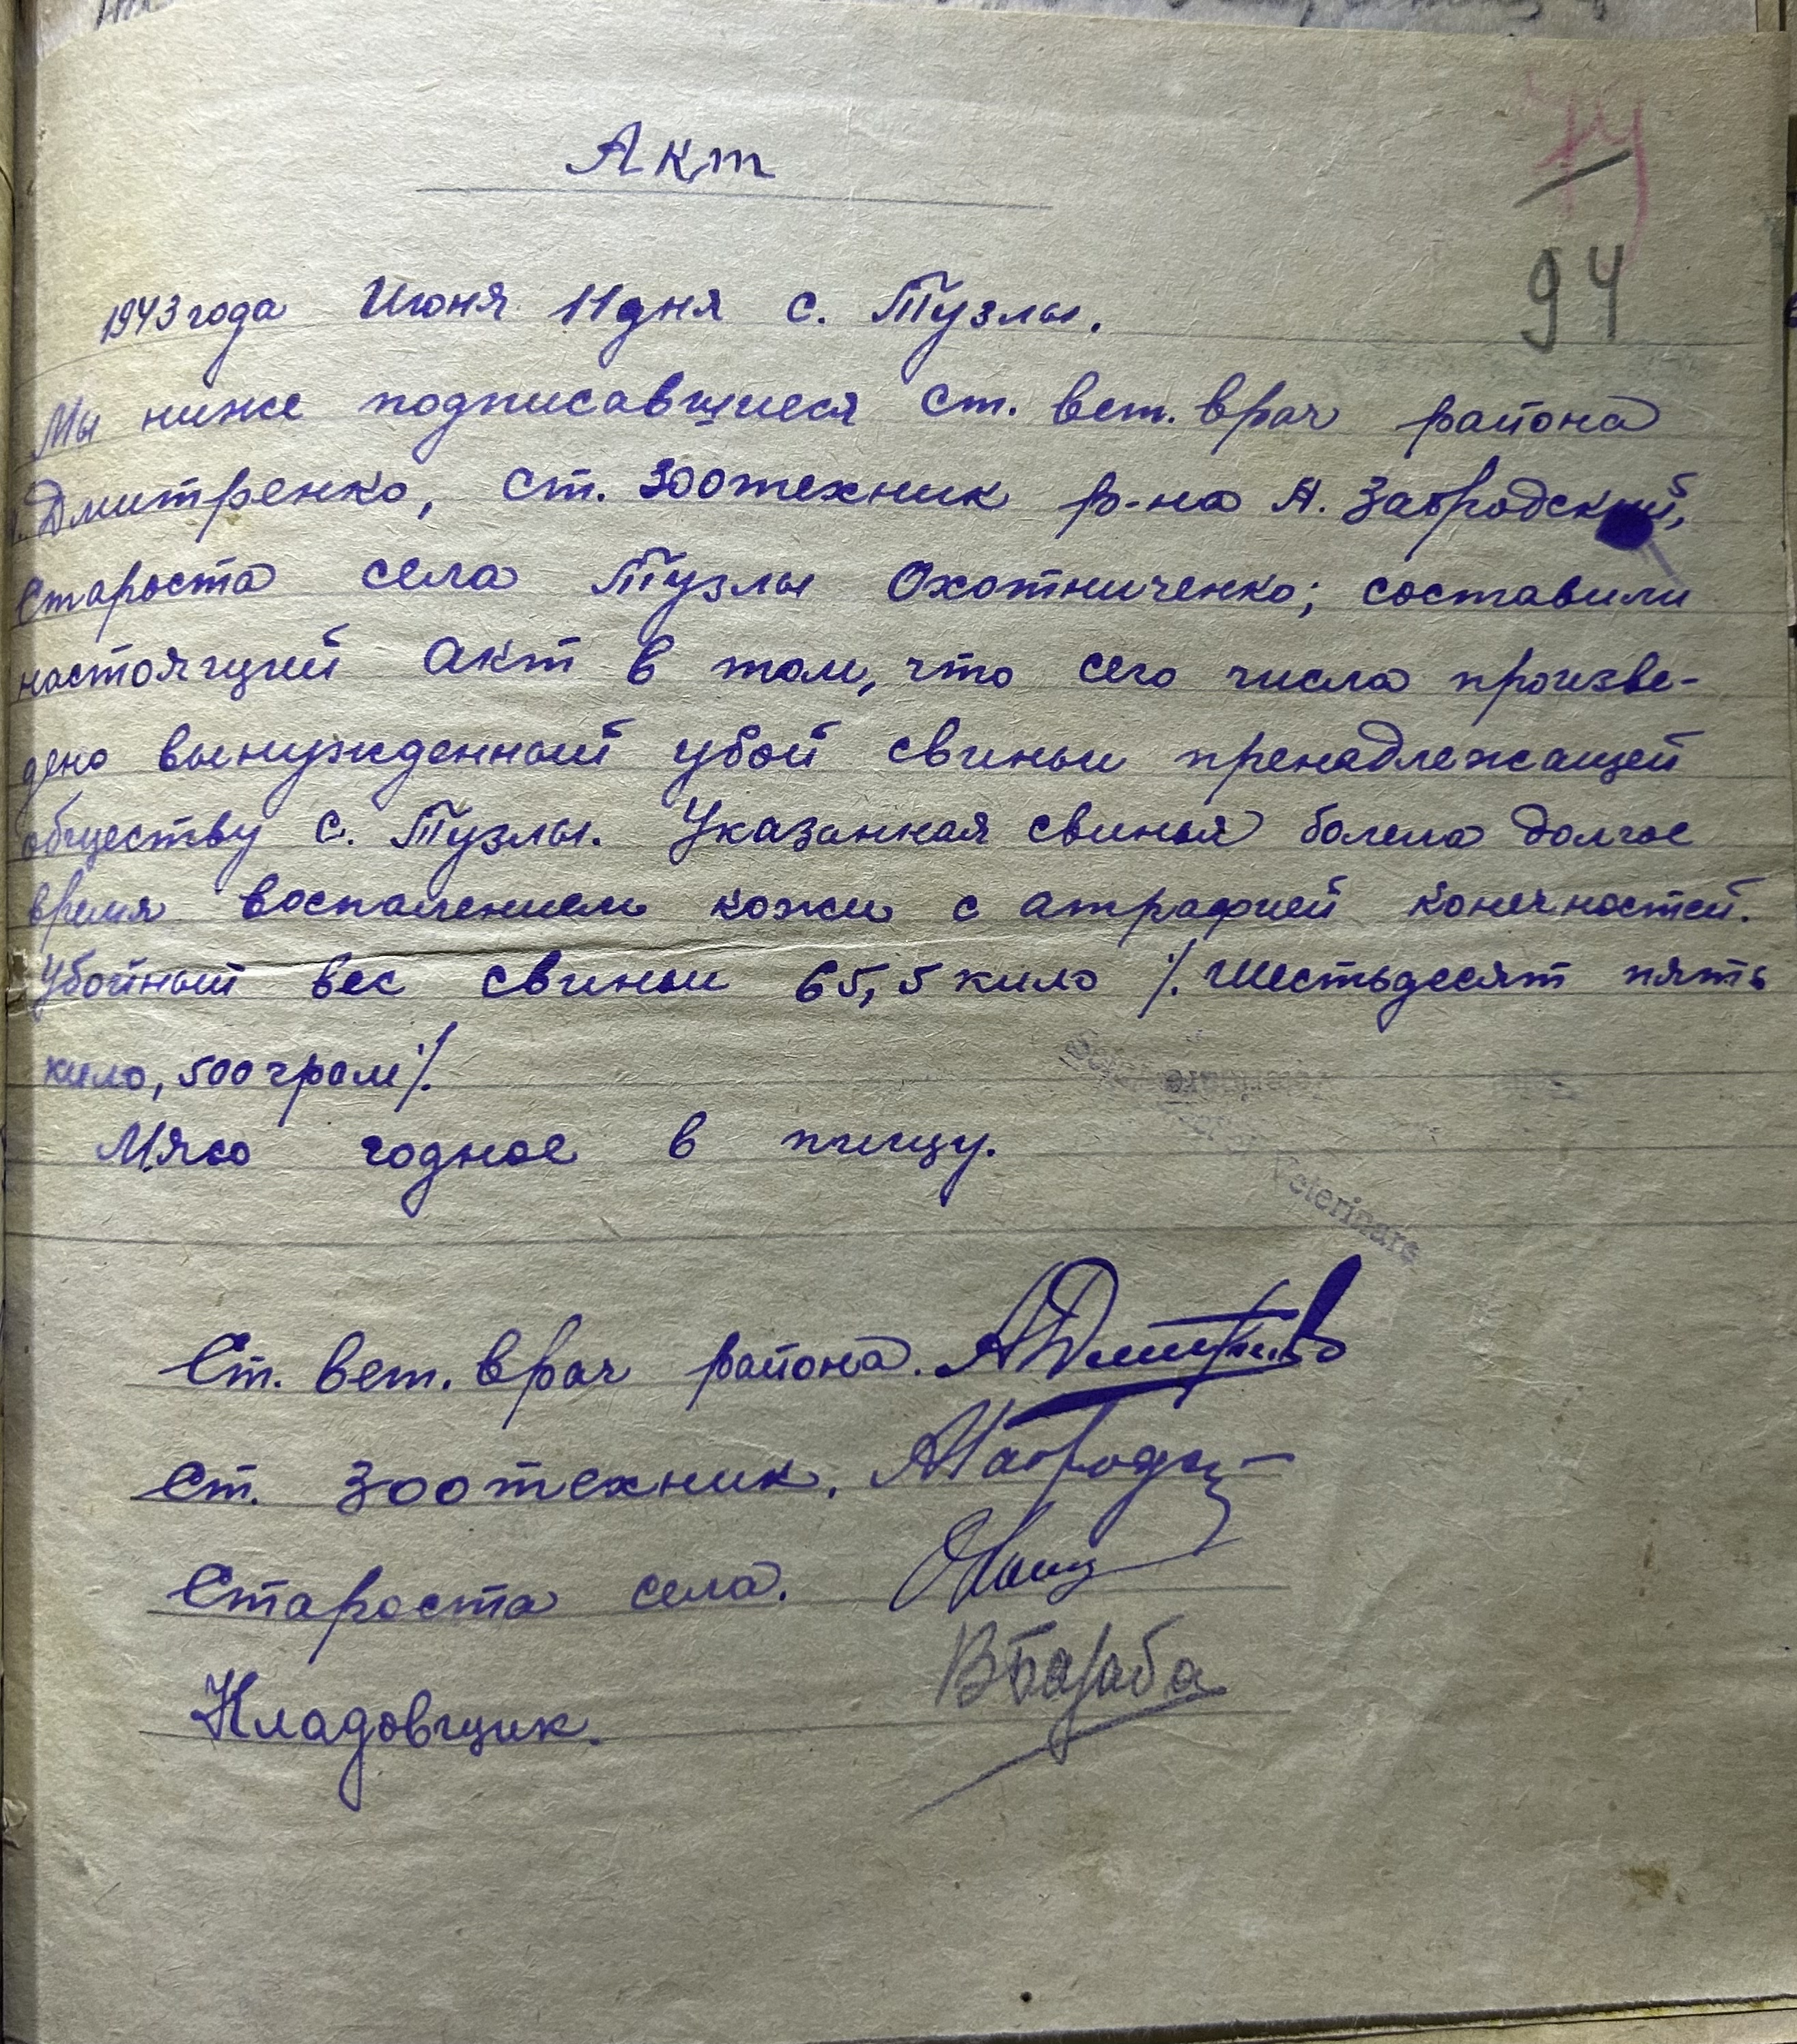 Акт
94
1943 года Июня 11 дня с. Тузлы.
Мы ниже подписавшиеся ст. вет. врач района
Дмитренко, ст. зоотехник р-на А. Завродский,
Староста села Тузлы Охотниченко; составили
настоящий акт в том, что сего числа произве-
дено вынужденный убой свиньи пренадлежащей
обществу с. Тузлы. Указанная свинья болела долгое
время воспалением кожи с атрафией конечностей.
Убойный вес свиньи 65,5 кило /. шестьдесят пять
кило, 500 грам /.
Мясо годное в пищу.
Veterinare
Ст. вет. врач района.
Ст. зоотехник.
Староста села.
Кладовщик. ВБараба